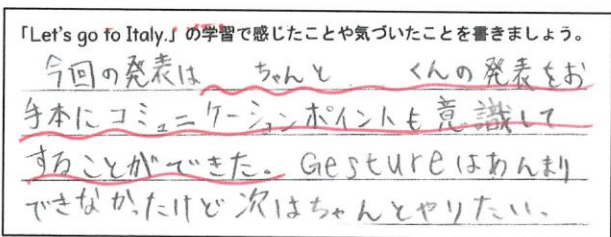 「Let's go to Italy.」の学習で感じたことや気づいたことを書きましょう。
今回の発表は ちゃんと くんの発表をお
手本にコミュニケーションポイントも意識して
することができた。Gestureはあんまり
できなかったけど次はちゃんとやりたい。